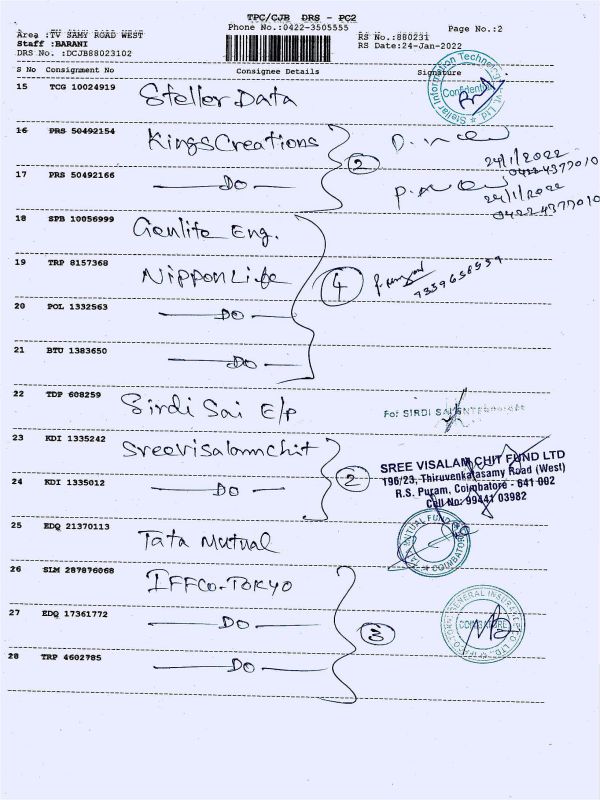 TPC/CJB DRS - PC2
Phone No.:0422-3505555
Page No.:2
Area :TV SAMY ROAD WEST
Staff :BARANI
DRS No. :DCJB88023102
RS No.:880231
RS Date:24-Jan-2022
S No Consignment No Consignee Details Signature
15 TCG 10024919 Steller Data
Stellar Information Technology Pvt. Ltd
Confidential
16 PRS 50492154 Kings Creations
24/1/2022
0422 4377010
2
17 PRS 50492166 DO
24/1/2022
0422 4377010
18 SPB 10056999 Genlite Eng.
19 TRP 8157368 Nippon Life
4
20 POL 1332563 DO
21 BTU 1383650 DO
22 TDP 608259 Sirdi Sai E/p
For SIRDI SAI
23 KDI 1335242 Sreevisalamchit
2
SREE VISALAM CHIT FUND LTD
196/23, Thiruvenkatasamy Road (West)
R.S. Puram, Coimbatore - 641 002
Cell No: 99441 03982
24 KDI 1335012 DO
25 EDQ 21370113 Tata Mutual
TATA MUTUAL FUND
COIMBATORE
26 SLM 287876068 IFFCO-TOKYO
27 EDQ 17361772 DO
3
GENERAL INSURANCE
COIMBATORE
28 TRP 4602785 DO